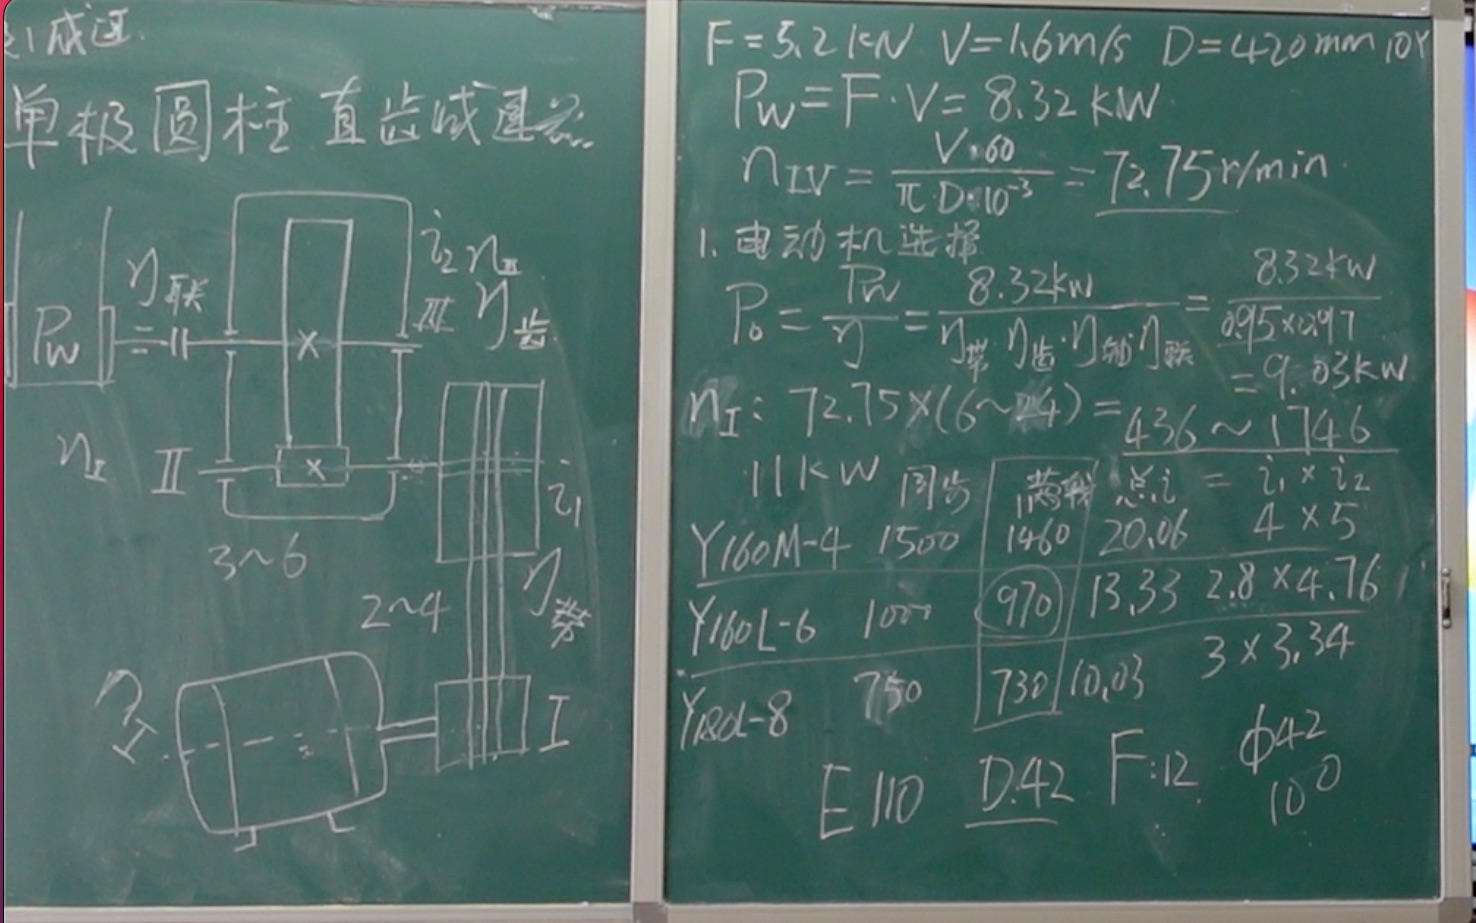 单极圆柱直齿减速器
i₂ n_Ⅲ
η联
Ⅲ η齿
Pw
n_Ⅱ Ⅱ
i₁
3~6
η带
2~4
n_Ⅰ
Ⅰ
F=5.2kN V=1.6m/s D=420mm 10Y
Pw=F·V=8.32KW
n_IV=V·60/π·D·10⁻³=72.75r/min
1.电动机选择
P₀=Pw/η=8.32kw/η带·η齿·η轴·η联=8.32kw/0.95×0.97
=9.03kw
n_I: 72.75×(6~24)=436~1746
11kW 同步 满载 总i = i₁×i₂
Y160M-4 1500 1460 20.06 4×5
Y160L-6 1000 970 13.33 2.8×4.76
Y180L-8 750 730 10.03 3×3.34
E110 D.42 F:12 φ42
100